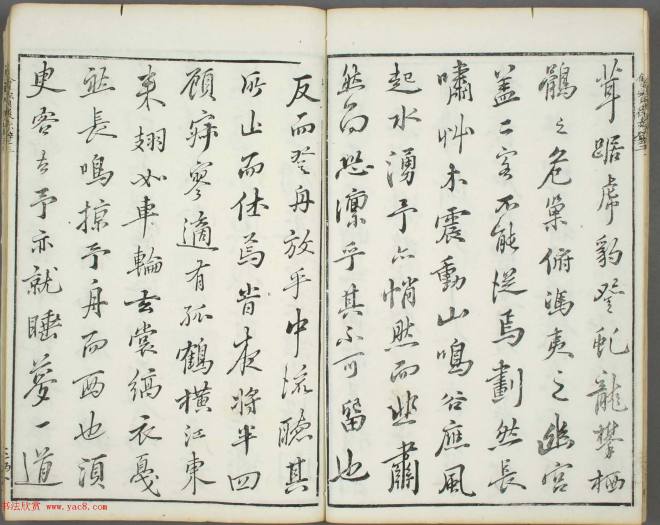 茸踞虎豹登虬龍攀栖
鶻之危巢俯馮夷之幽宮
盖二客不能從焉劃然長
嘯艸木震動山鳴谷應風
起水湧予亦悄然而悲肅
然而恐凛乎其不可留也
反而登舟放乎中流聽其
所止而休焉峕夜將半四
顧寂寥適有孤鶴橫江東
来翅如車輪玄裳縞衣戛
然長鳴掠予舟而西也須
臾客去予亦就睡夢一道
书法欣赏 www.yac8.com